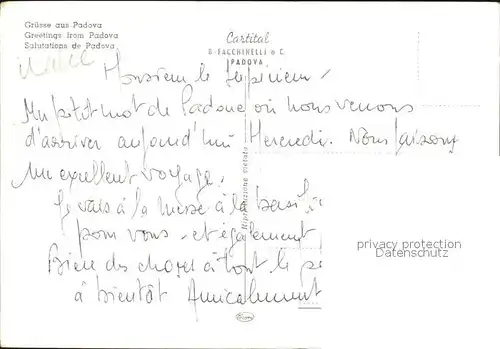 Grüsse aus Padova
Greetings from Padova
Salutations de Padova
Cartital
G. FACCHINELLI e C.
PADOVA
Riproduzione vietata
Monsieur le Supérieur,
Un petit mot de Padoue où nous venons
d'arriver aujourd'hui Mercredi. Nous faisons
un excellent voyage.
Je vais à la messe à la
pour vous - et également
Bien des choses à tout le
à bientôt Amicalement
privacy protection
Datenschutz